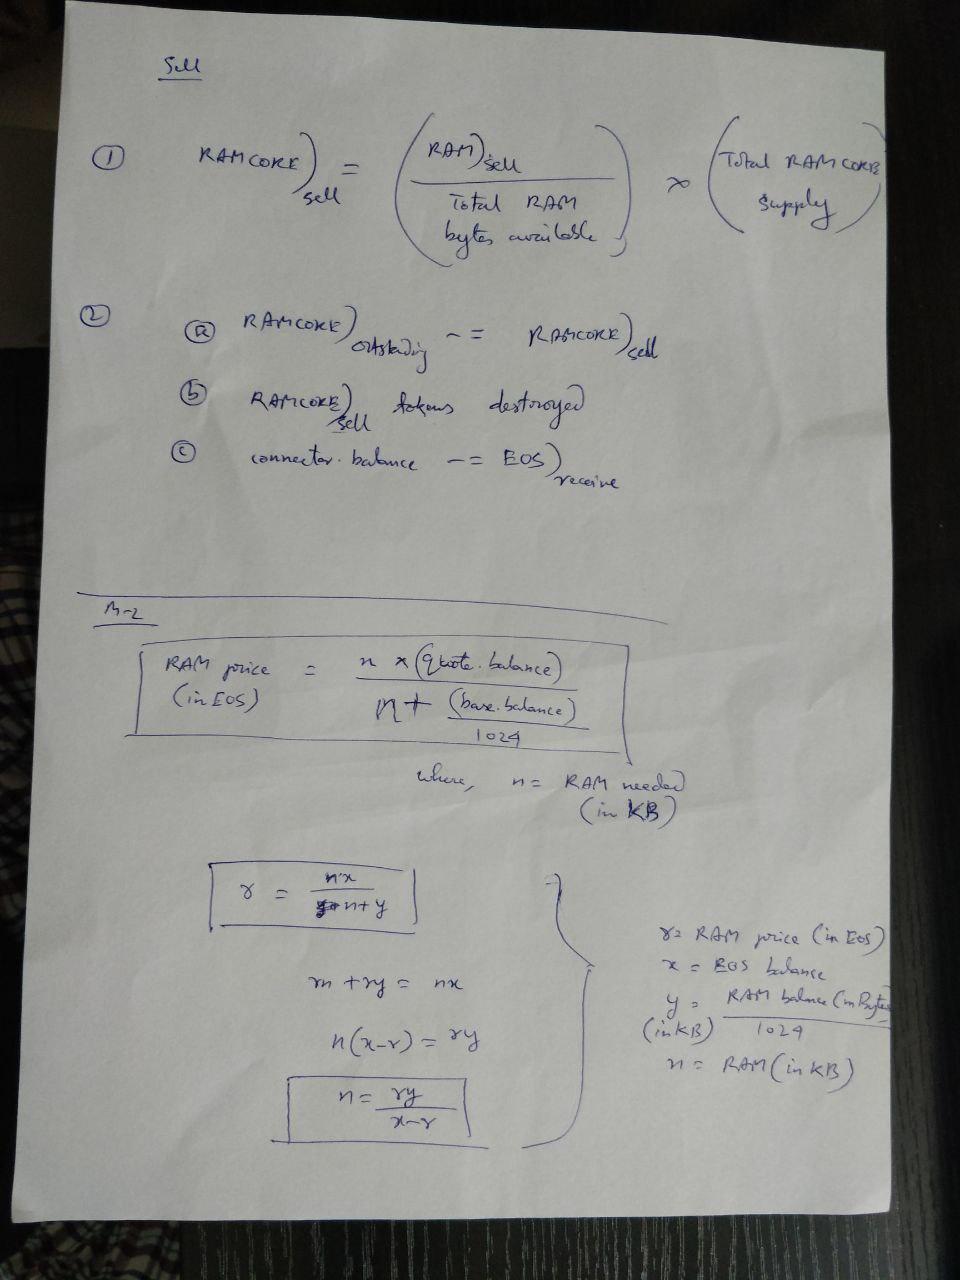 Sell
① RAMCORE)sell = (RAM)sell / Total RAM bytes available) × (Total RAMCORE Supply)
② ⓐ RAMCORE)outstanding -= RAMCORE)sell
ⓑ RAMCORE)sell tokens destroyed
ⓒ connector.balance -= EOS)receive
M-2
RAM price (in EOS) = n × (quote.balance) / n + (base.balance)/1024
where, n = RAM needed (in KB)
r = nx / n+y
rn + ry = nx
n(x-r) = ry
n = ry / x-r
r = RAM price (in EOS)
x = EOS balance
y (in KB) = RAM balance (in Bytes) / 1024
n = RAM (in KB)